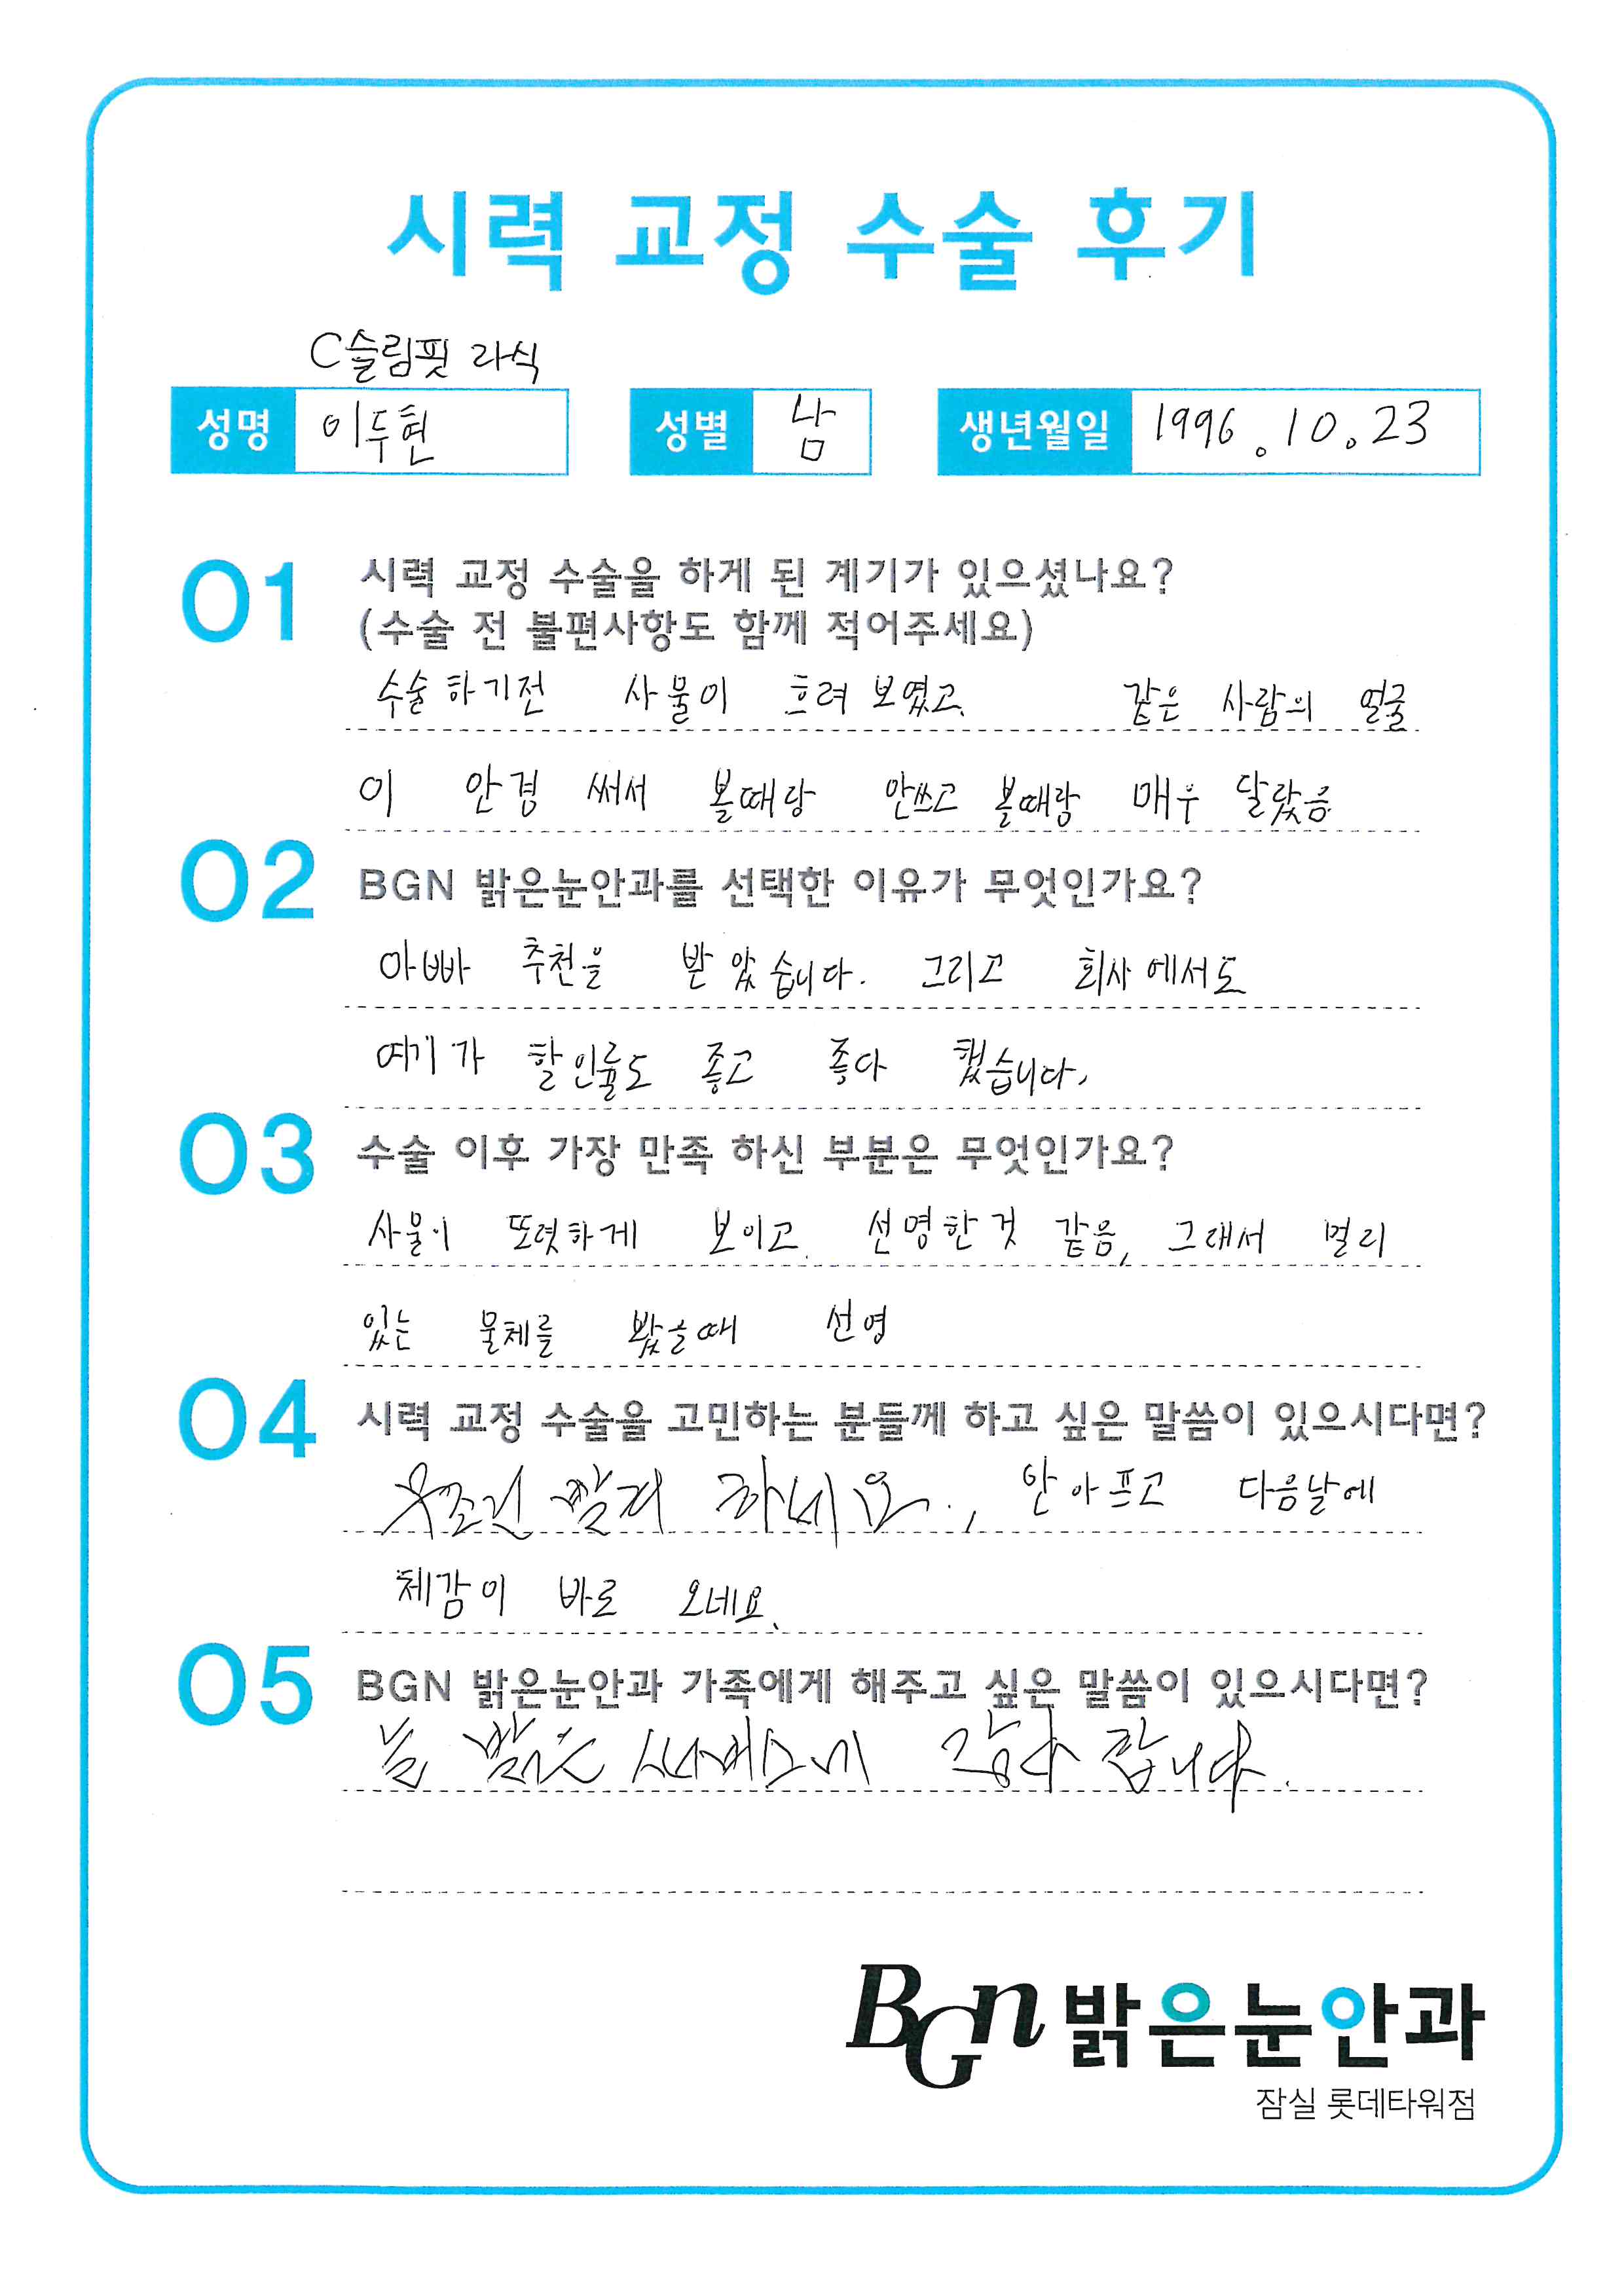 시력 교정 수술 후기
C슬림핏 라식
성명 이두현 성별 남 생년월일 1996.10.23
01 시력 교정 수술을 하게 된 계기가 있으셨나요?
(수술 전 불편사항도 함께 적어주세요)
수술하기전 사물이 흐려 보였고, 같은 사람의 얼굴
이 안경 써서 볼때랑 안쓰고 볼때랑 매우 달랐음
02 BGN 밝은눈안과를 선택한 이유가 무엇인가요?
아빠 추천을 받았습니다. 그리고 회사에서도
여기가 할인률도 좋고 좋다 했습니다.
03 수술 이후 가장 만족 하신 부분은 무엇인가요?
사물이 또렷하게 보이고, 선명한것 같음, 그래서 멀리
있는 물체를 봤을때 선명
04 시력 교정 수술을 고민하는 분들께 하고 싶은 말씀이 있으시다면?
무조건 빨리 하세요., 안아프고 다음날에
체감이 바로 오네요.
05 BGN 밝은눈안과 가족에게 해주고 싶은 말씀이 있으시다면?
늘 밝은 서비스에 감사 합니다.
BGn 밝은눈안과
잠실 롯데타워점